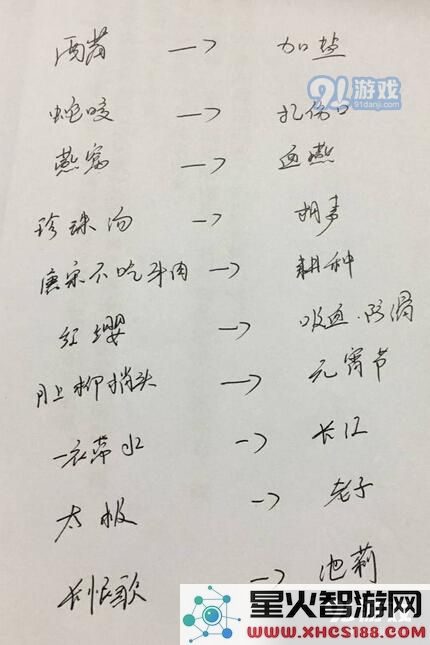 酒菌 → 加盐
91游戏
91danji.com
蛇咬 → 扎伤口
燕窝 → 血燕
珍珠汤 → 胡麦
唐宋不吃牛肉 → 耕种
红缨 → 吸血.防滑
月上柳梢头 → 元宵节
一衣带水 → 长江
太极 → 老子
长恨歌 → 池莉
星火智游网
www.xhcs188.com